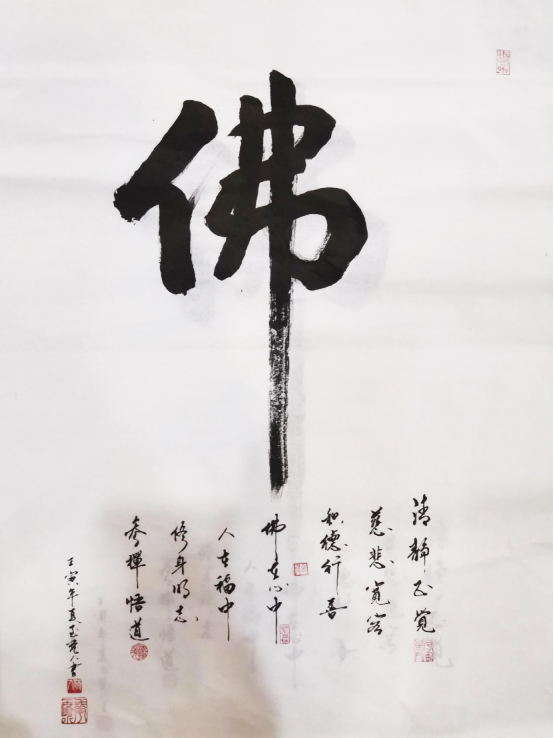 佛
清静正觉
慈悲宽容
积德行善
佛在心中
人在福中
修身明志
参禅悟道
壬寅年